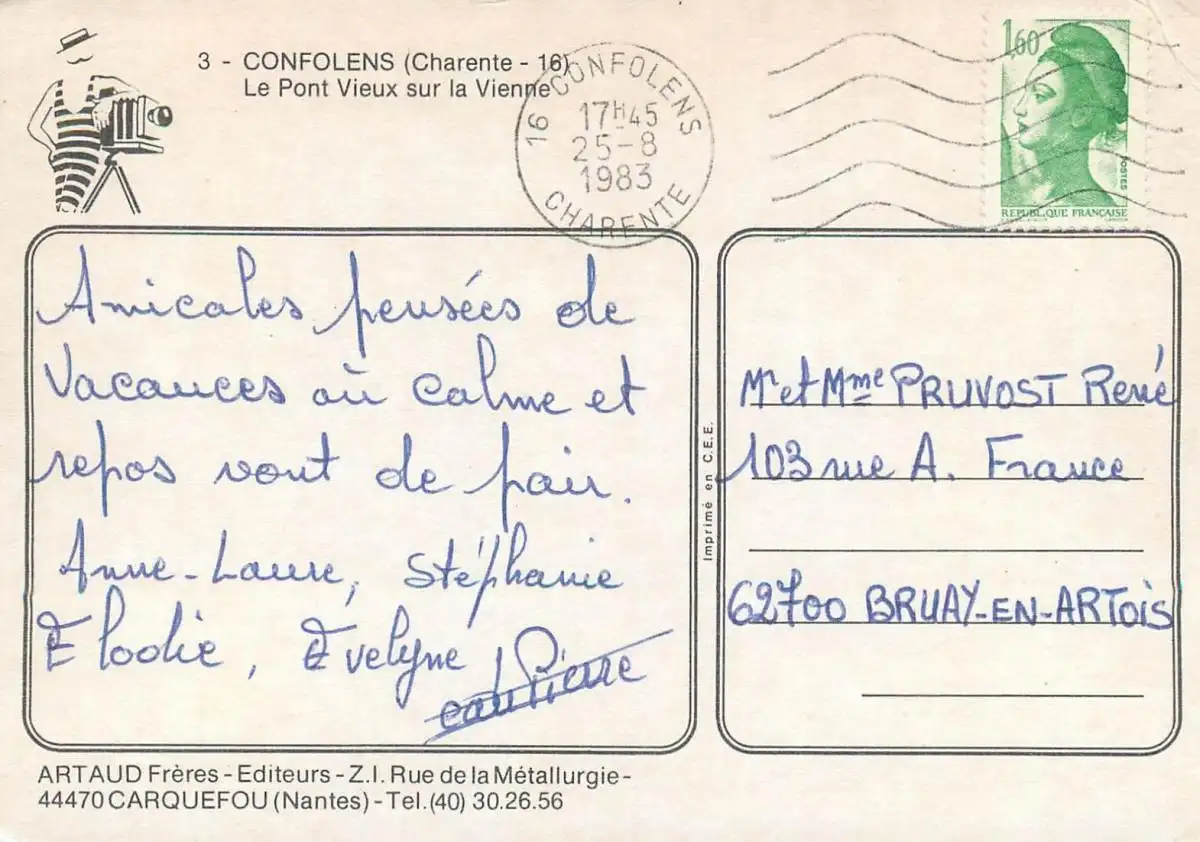 3 - CONFOLENS (Charente - 16)
Le Pont Vieux sur la Vienne
16 CONFOLENS
17H45
25-8
1983
CHARENTE
1,60
POSTES
REPUBLIQUE FRANÇAISE
Amicales pensées de
Vacances où calme et
repos vont de pair.
Anne-Laure, Stéphanie
Elodie, Evelyne
Pierre
Imprimé en C.E.E.
Mr et Mme PRUVOST René
103 rue A. France
62700 BRUAY-EN-ARTOIS
ARTAUD Frères - Editeurs - Z.I. Rue de la Métallurgie -
44470 CARQUEFOU (Nantes) - Tel. (40) 30.26.56